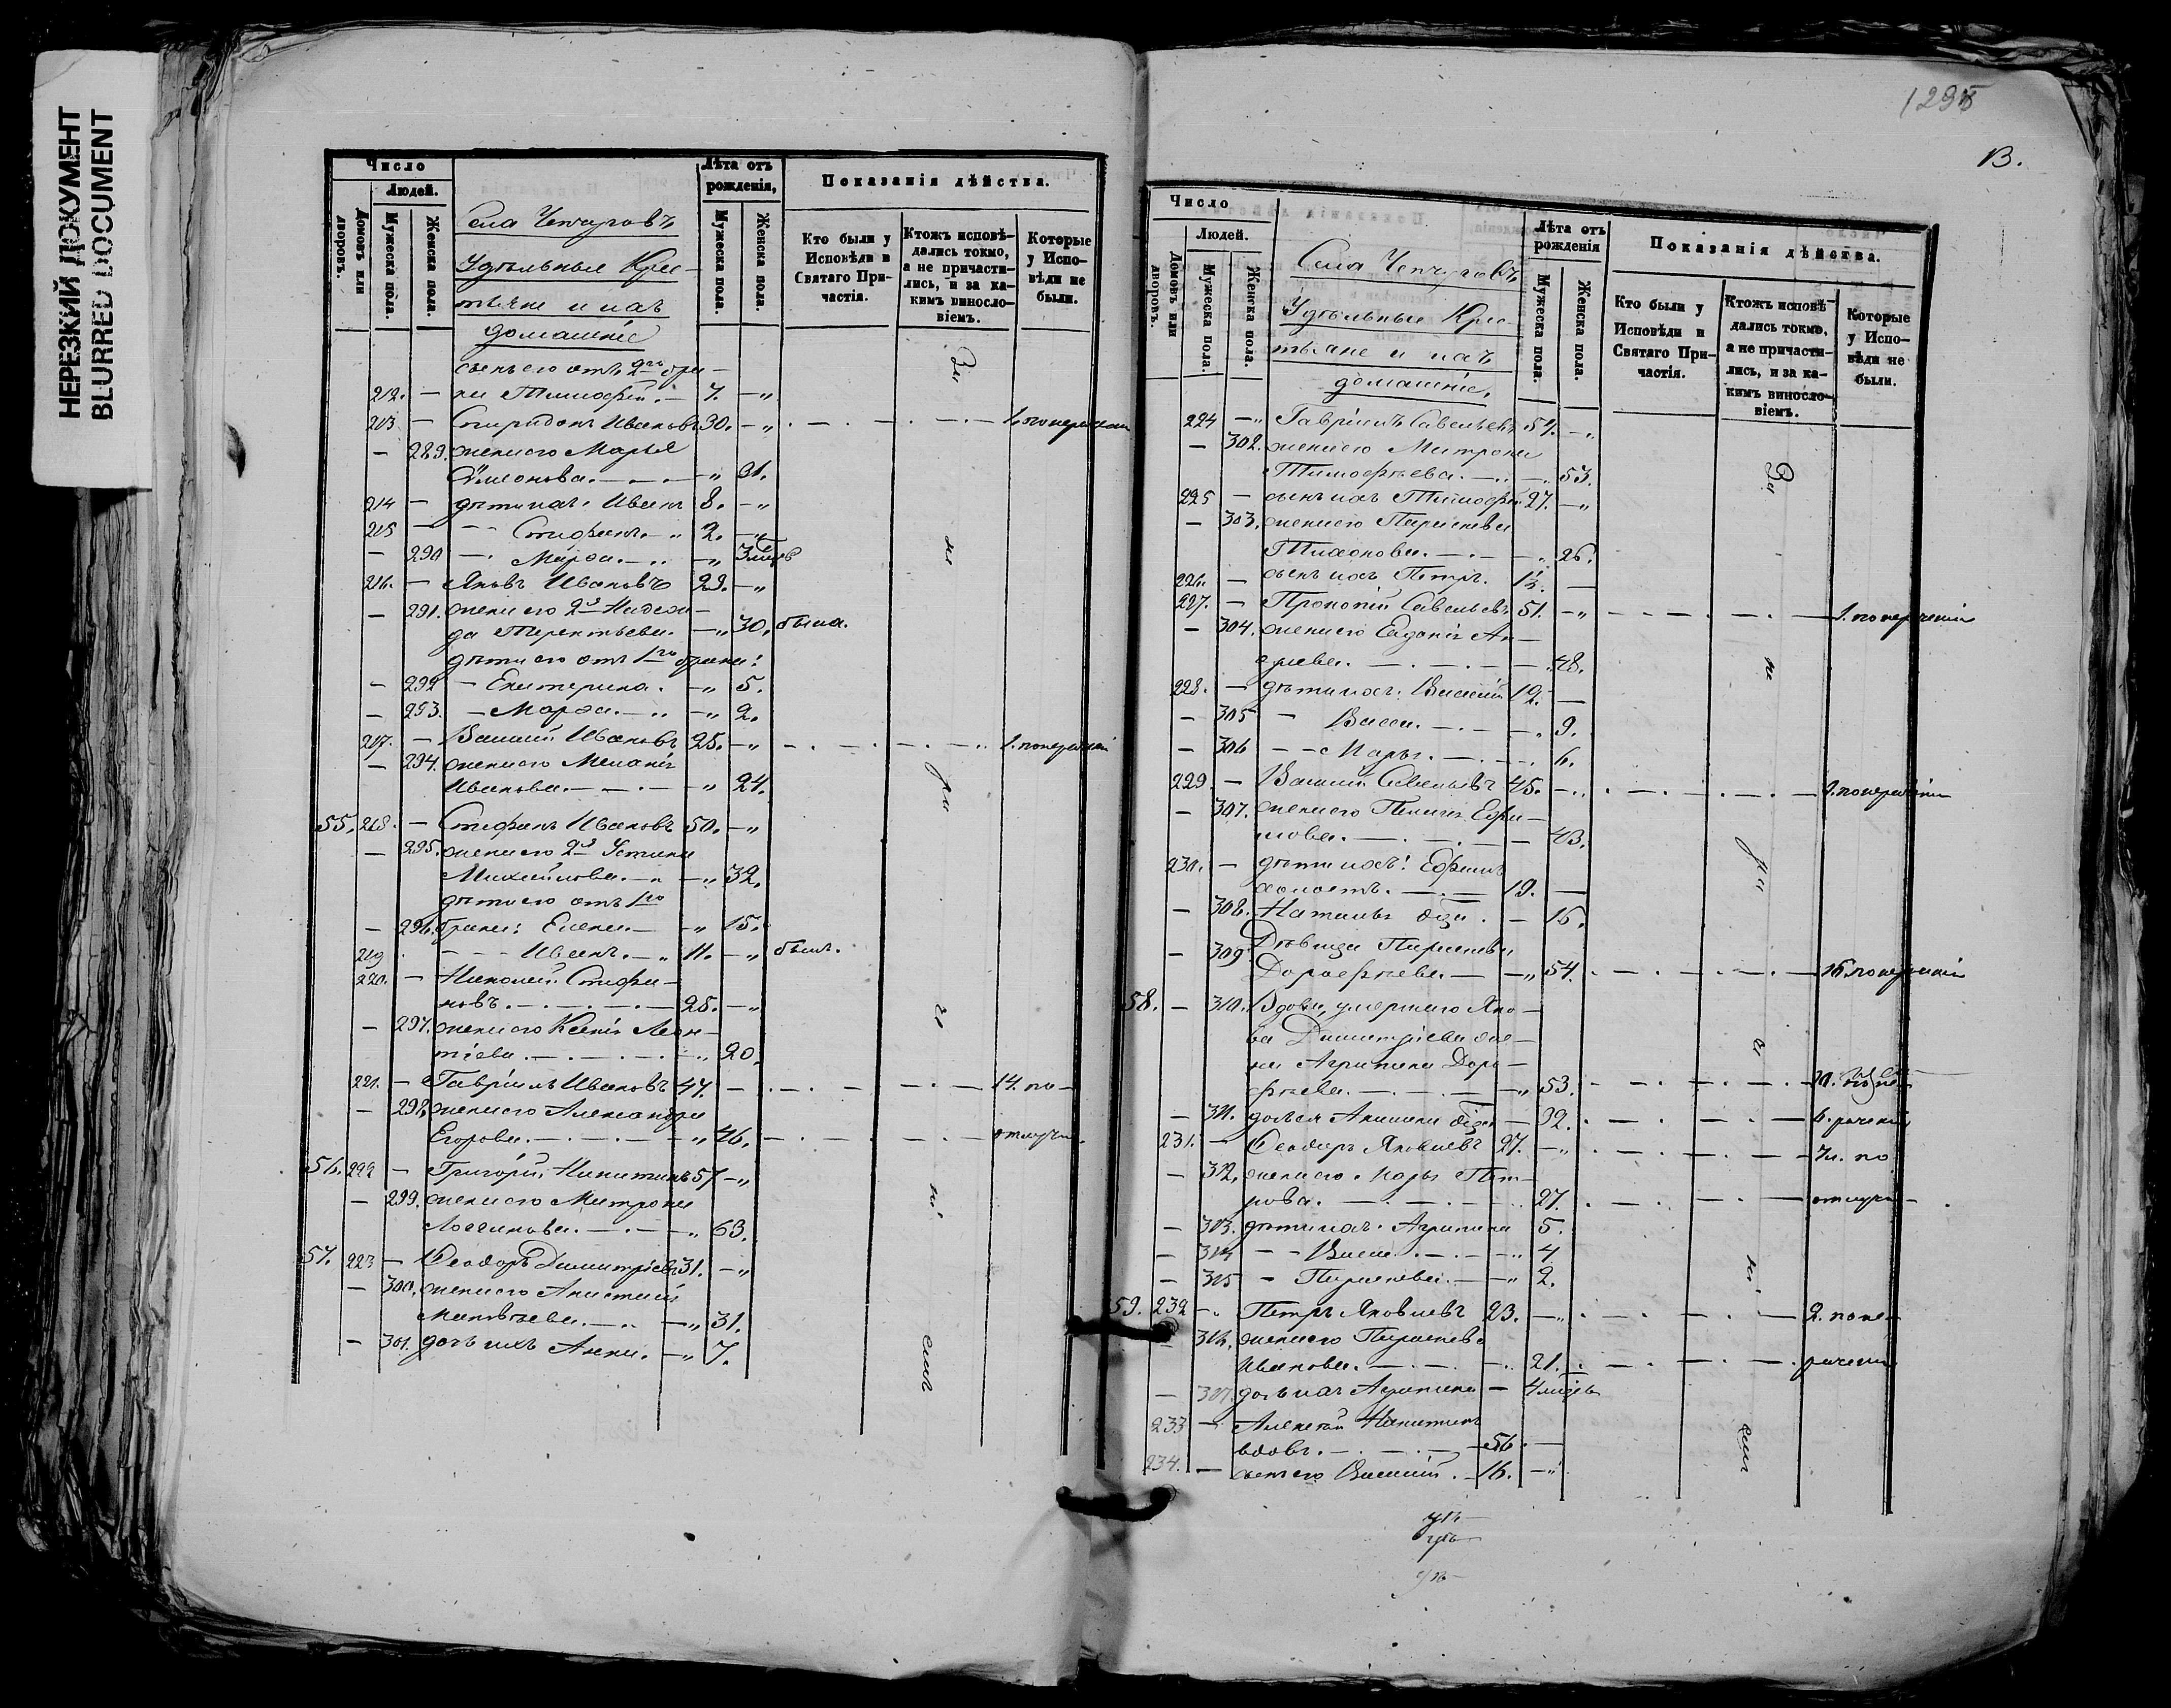 НЕРЕЗКИЙ ДОКУМЕНТ
BLURRED DOCUMENT
Число
Людей.
Домовъ или дворовъ.
Мужеска пола.
Женска пола.
Села Чепчуговъ
Удѣльные Крес-
тьяне и ихъ
домашніе
Лѣта отъ рожденія,
Мужеска пола.
Женска пола.
Показанія дѣйства.
Кто были у Исповѣди и Святаго При-частія.
Ктожъ исповѣ-дались токмо, а не причасти-лись, и за ка-кимъ винносло-віемъ.
Которые у Испо-вѣди не были.
сынъ его отъ 2го бра-
212. — ка Тимофей. — 7. — „
213 — Спиридонъ Ивановъ 30. — „ 1. по нерадѣнію
— 289. жена его Марья
Симонова. — „ 31.
214 — дѣти ихъ: Иванъ 8. — „
215 — Стефанъ. — „ 2. — „
— 290 — Марѳа. — „ 3 мѣсц.
216. — Яковъ Ивановъ 29. — „
— 291. жена его 2я Надеж-
да Терентьева. — „ 30. была.
дѣти его отъ 1го брака:
— 292 — Екатерина. — „ 5.
— 293. — Марѳа. — „ 2.
217. — Василій Ивановъ 25. — „ 1. по нерадѣнію
— 294. жена его Меланія
Иванова. — „ 24.
55. 218. — Стефанъ Ивановъ 50. — „
— 295. жена его 2я Устинья
Михайлова. — „ 32.
дѣти его отъ 1го
— 296. брака: Елена — „ 15.
219 — Иванъ. — „ 11. — „ былъ.
220. — Николай Стефа-
новъ. — 25. — „
— 297. жена его Ксенія Леон-
тіева. — „ 20.
221. — Гавріилъ Ивановъ 47. — 14. по
— 298. жена его Александра
Егорова. — „ 46. — отлучк.
56. 222 — Григорій Никитинъ 57 — „
— 299. жена его Матрона
Логгинова. — „ 63.
57. 223 — Ѳеодоръ Димитріевъ 31. — „
— 300. жена его Анастасія
Матвѣева. — „ 31.
— 301. дочь ихъ Анна. — „ 7.
1295
13.
Число
Людей.
Домовъ или дворовъ.
Мужеска пола.
Женска пола.
Села Чепчуговъ
Удѣльные Крес-
тьяне и ихъ
домашніе.
Лѣта отъ рожденія
Мужеска пола.
Женска пола.
Показанія дѣйства.
Кто были у Исповѣди и Святаго При-частія.
Ктожъ исповѣ-дались токмо, а не причасти-лись, и за ка-кимъ винносло-віемъ.
Которые у Испо-вѣди не были.
224 — „ Гавріилъ Савельевъ 54. — „
— 302. жена его Матрона
Тимофеева. — „ 53.
225 — сынъ ихъ Тимофей 27. — „
— 303. жена его Параскева
Тихонова. — „ 26.
226. — сынъ ихъ Петръ. 1½. —
227. — Прокопій Савельевъ 51. — „ 1. по нерадѣнію
— 304. жена его Евдокія Ан-
дреева. — „ 48.
228. — дѣти ихъ: Василій 12. —
— 305 — Васса. — „ 9.
— 306 — Марья. — „ 6.
229 — Василій Савельевъ 45. — „ 1. по нерадѣнію
— 307. жена его Пелагія Ефи-
мова. — 43.
230. — дѣти ихъ: Ефимъ
холостъ. — 19. —
— 308. Наталья дѣв. — 15.
— 309. Дѣвица Параскева
Дороѳеева — „ 54. — 16. по нерадѣнію
58. — 310. Вдова, умершаго Яко-
ва Димитріева же-
на Агрипина Доро-
ѳеева. — „ 53.
— 311. дочь ея Акилина дѣв. — 22.
231. — Ѳеодоръ Яковлевъ 27. — „ 7 л. по
— 312. жена его Марья Пет-
рова. — „ 27. — отлучк.
— 313. дѣти ихъ: Агрипина 5.
— 314 — Васса. — „ 4.
— 315 — Параскева. — „ 2.
59. 232 — „ Петръ Яковлевъ 23. — „ 2. по не-
316. жена его Параскева
Иванова. — „ 21. — радѣнію
— 317. дочь ихъ Агрипина — 4 мѣсц.
233 — Алексѣй Никитинъ
вдовъ. — 56. —
234. — сынъ его Василій. — 16. — „